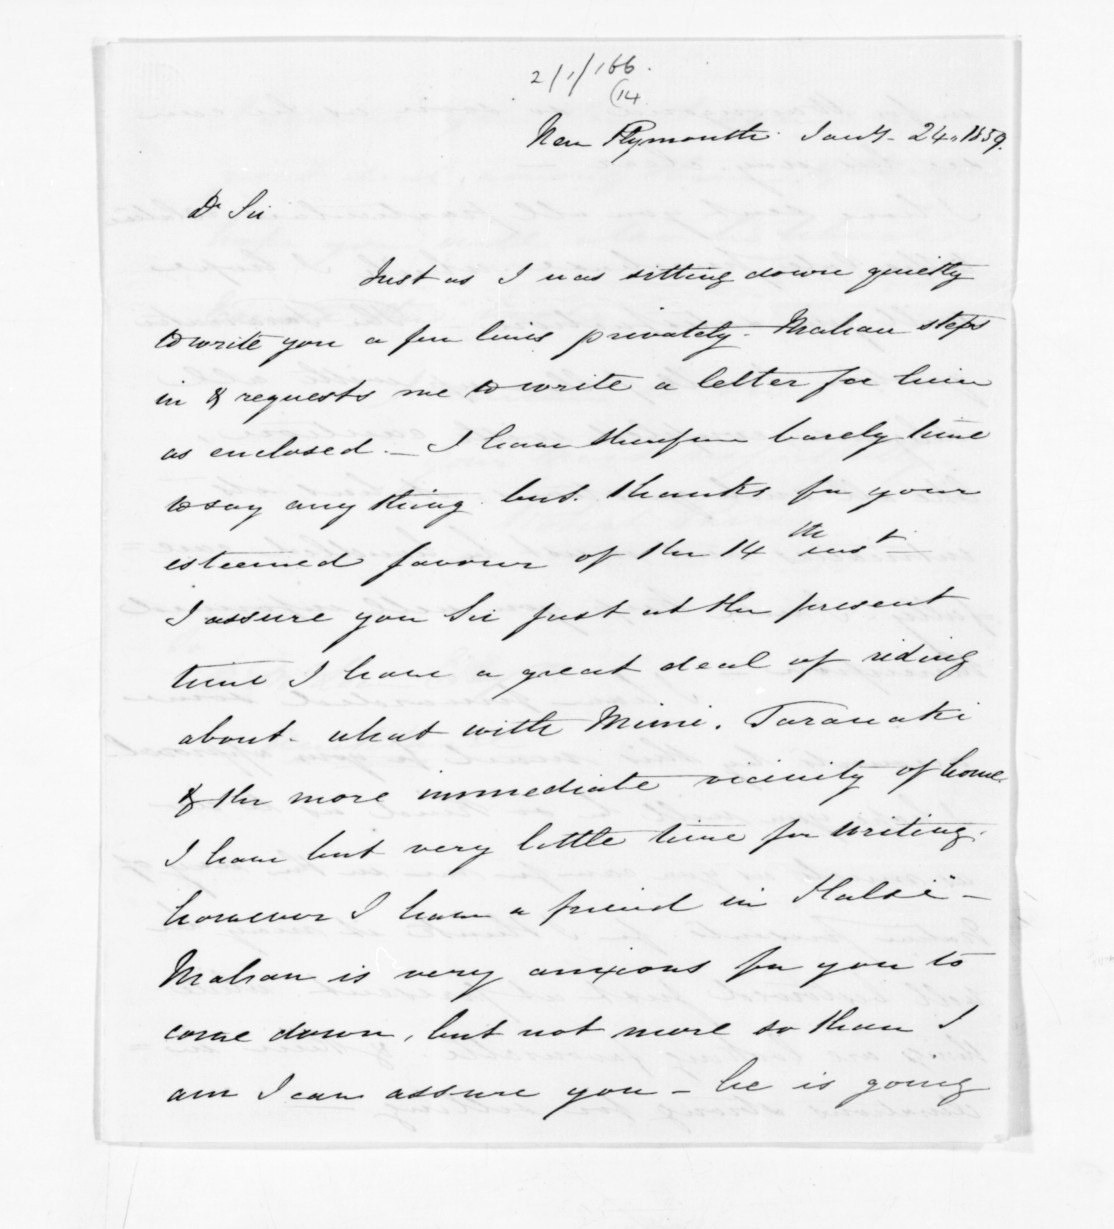 2/1/166.
(14
New Plymouth Jany. 24. 1859.
Dr Sir
Just as I was sitting down quietly
to write you a few lines privately - Mahau steps
in & requests me to write a letter for him
as enclosed. - I have therefore barely time
to say any thing but thanks for your
esteemed favour of the 14th inst
I assure you Sir just at the present
time I have a great deal of riding
about - what with Mimi, Taranaki
& the more immediate vicinity of home
I have but very little time for writing.
however I have a friend in Halse -
Mahau is very anxious for you to
come down, but not more so than I
am I can assure you - he is going